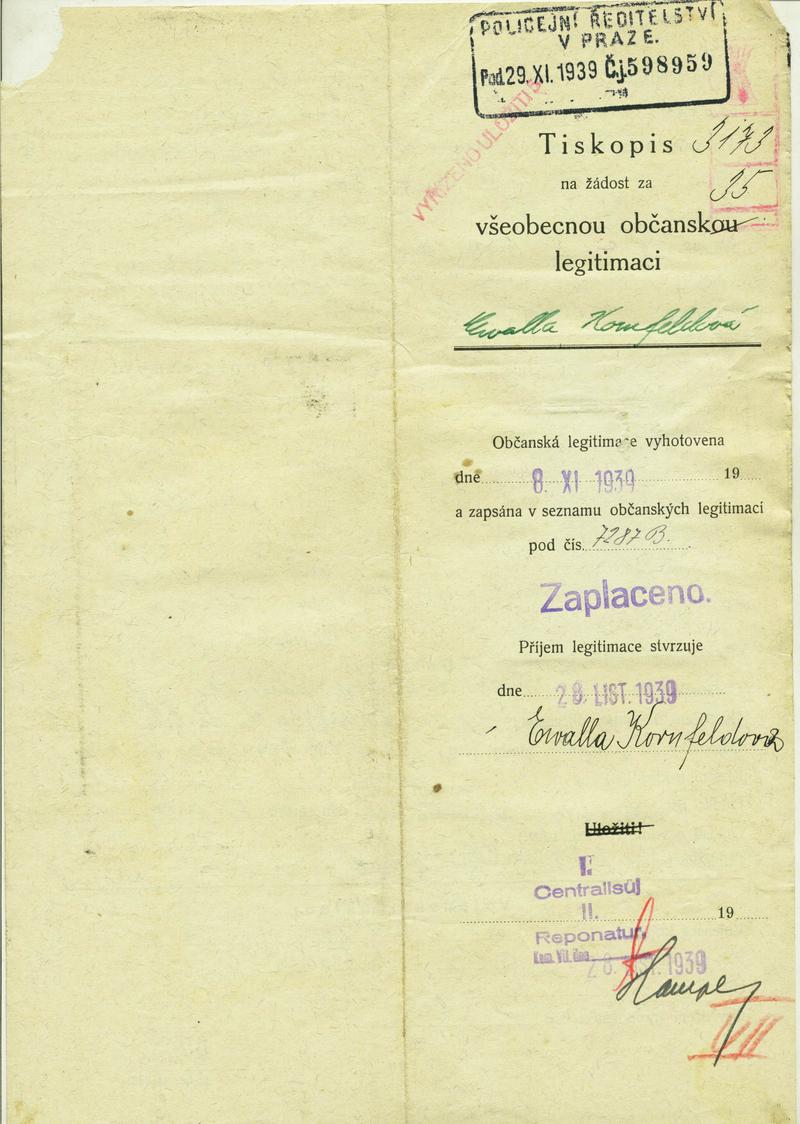 POLICEJNÍ ŘEDITELSTVÍ
V PRAZE.
Pod. 29. XI. 1939 Čj. 598959
VYŘÍZENO ULOŽITI
Tiskopis 3173
na žádost za 35
všeobecnou občanskou
legitimaci
Ewalla Kornfeldová
Občanská legitimace vyhotovena
dne 8. XI 1939 19
a zapsána v seznamu občanských legitimací
pod čís. 7287 B.
Zaplaceno.
Příjem legitimace stvrzuje
dne 28. LIST. 1939
Ewalla Kornfeldova
Uložiti!
I.
Centralisuj
II.
19
Reponatur.
28. 1939
VII